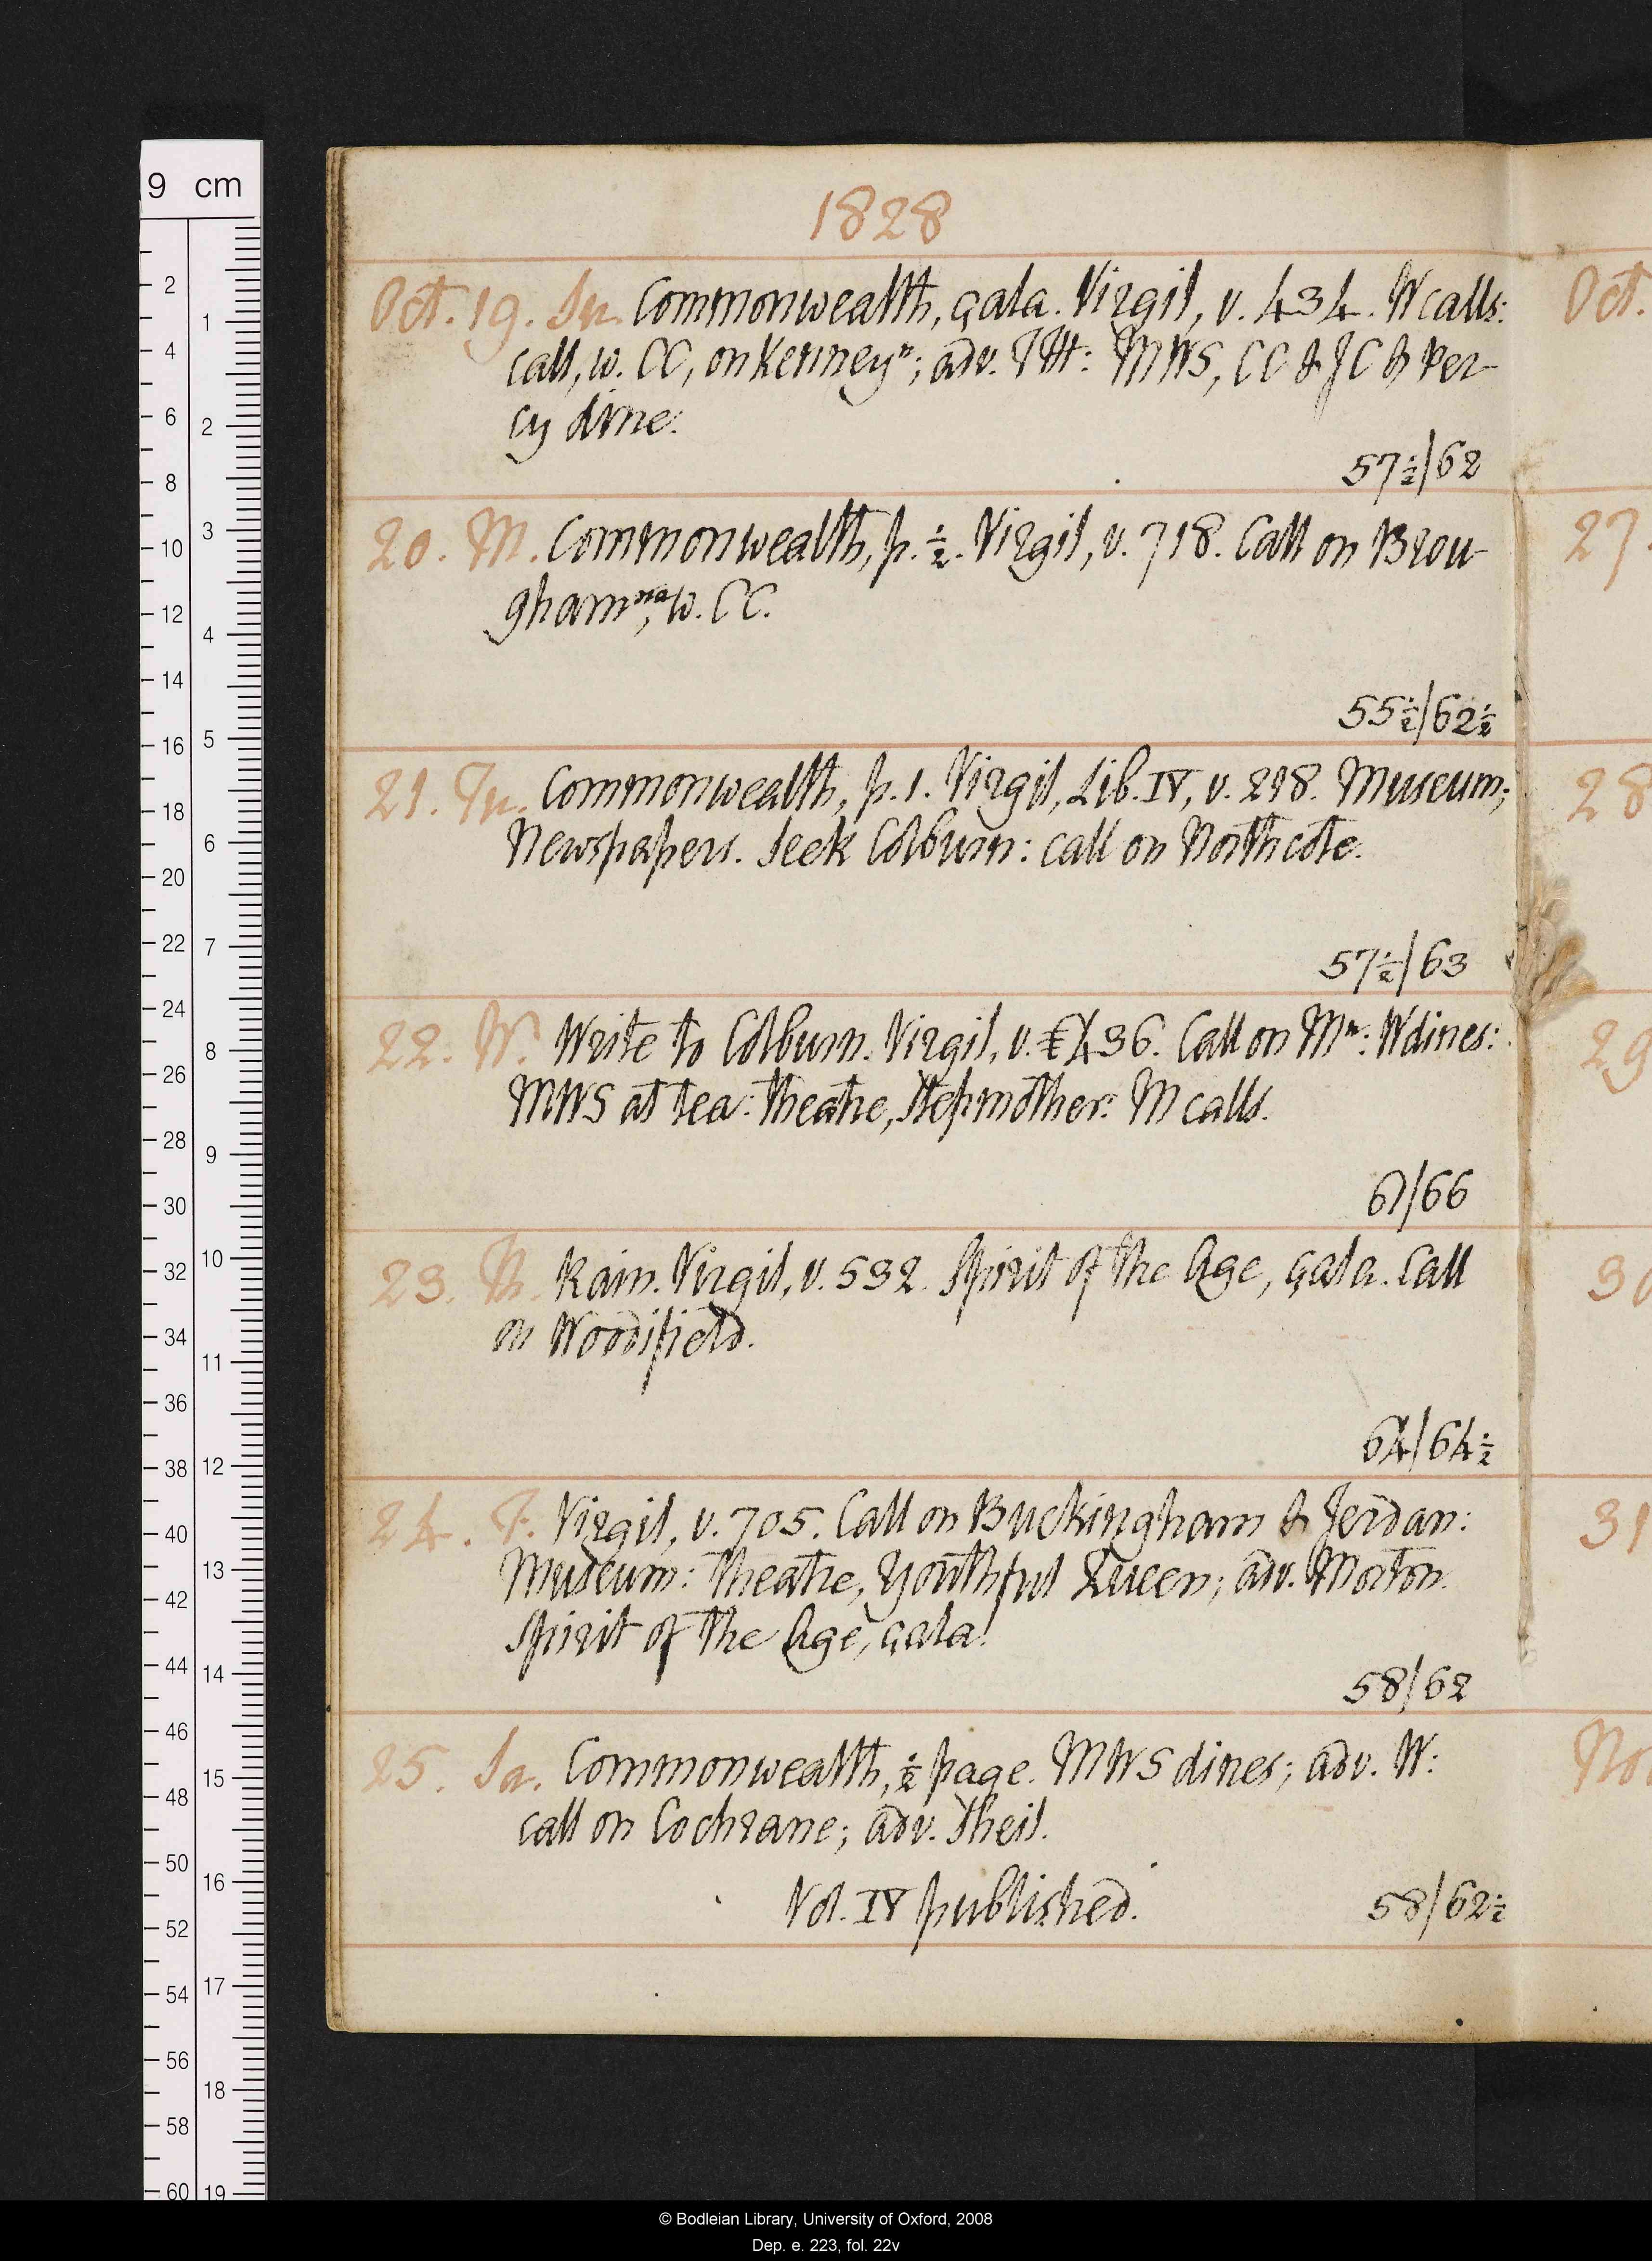 1828
Oct. 19. Su. Commonwealth, çala. Virgil, v. 434. W calls:
call, w. CC, on Kenneyⁿ; adv. THt: MWS, CC & JC & Per-
cy dine:
57½/62
20. M. Commonwealth, p. ½. Virgil, v. 718. Call on Brou-
ghamⁿᵃ, w. CC.
55½/62½
21. Tu. Commonwealth, p. 1. Virgil, Lib. IV, v. 298. Museum;
Newspapers. Seek Colburn: call on Northcote.
57½/63
22. W. Write to Colburn. Virgil, v. 436. Call on Mⁿ: W dines:
MWS at tea: theatre, Stepmother: M calls.
61/66
23. Th. Rain. Virgil, v. 532. Spirit of the Age, çala. Call
on Woodifield.
64/64½
24. F. Virgil, v. 705. Call on Buckingham & Jerdan:
Museum: theatre, Youthful Queen; adv. Morton.
Spirit of the Age, çala.
58/62
25. Sa. Commonwealth, ½ page. MWS dines; adv. W:
call on Cochrane; adv. Sheil.
Vol. IV published.
58/62½
Oct.
27.
28
29
30
31
No
9 cm
2
4
6
8
10
12
14
16
18
20
22
24
26
28
30
32
34
36
38
40
42
44
46
48
50
52
54
56
58
60
1
2
3
4
5
6
7
8
9
10
11
12
13
14
15
16
17
18
19
© Bodleian Library, University of Oxford, 2008
Dep. e. 223, fol. 22v